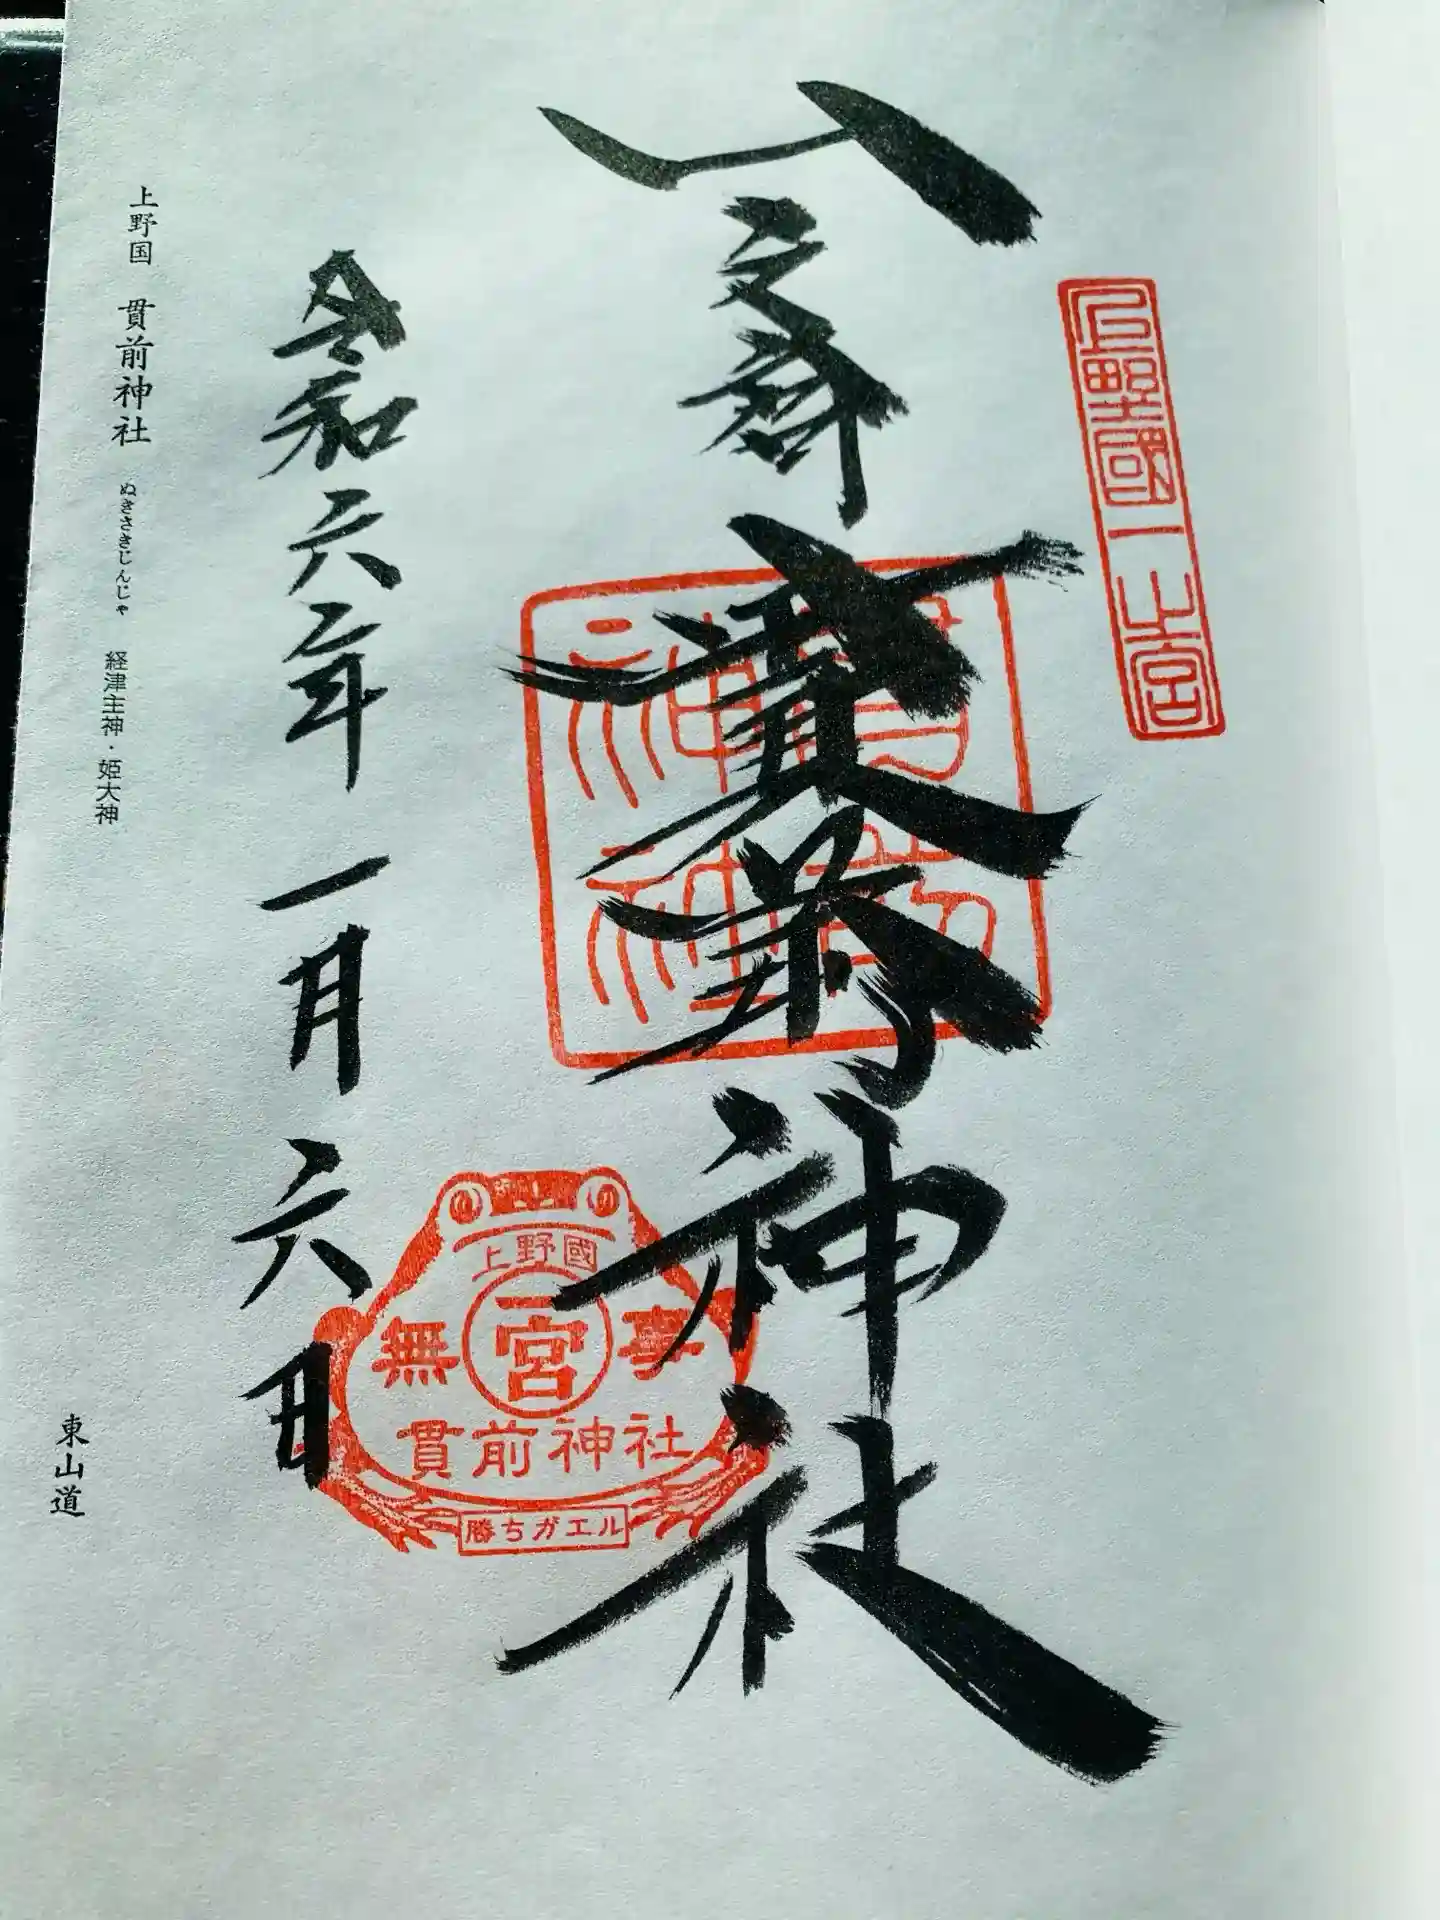 上野國一之宮
一之宮
貫前神社
貫前神社
令和六年一月六日
上野國
一宮
無事
貫前神社
勝ちガエル
上野国 貫前神社 ぬきさきじんじゃ 経津主神・姫大神
東山道